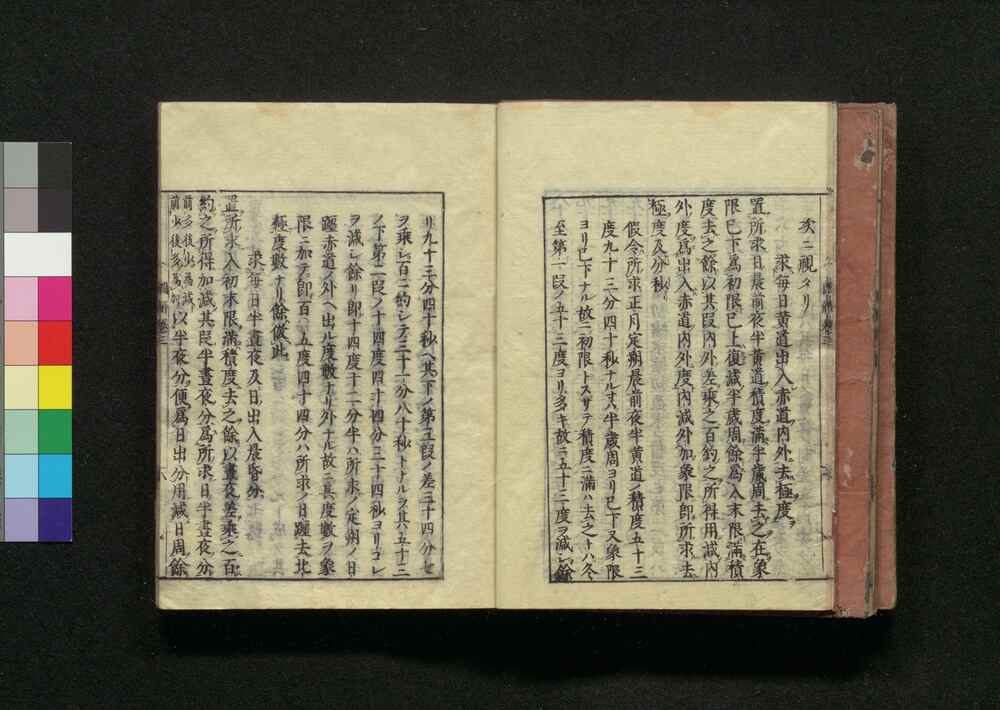 次ニ視タリ
求毎日黄道出入赤道内外去極度
置所求日晨前夜半黄道積度滿半歲周去之在象
限已下爲初限已上復減半歲周餘爲入末限滿積
度去之餘以其段内外差乘之百約之所得用減内
外度爲出入赤道内外度内減外加象限即所求去
極度及分秒
假令所求正月定朔晨前夜半黄道ノ積度五十三
度九十三分四十秒ナル寸ハ半歲周ヨリ已下又象限
ヨリ已下ナル故ニ初限トスサテ積度ニ滿ハ去之トハ冬
至第一段ノ五十三度ヨリ多キ故ニ五十三度ヲ減シ餘
リ九十三分四十秒ヘ其下ノ第五段ノ差三十四分七
ヲ乘シ百ニ約シテ三十一分八十秒トナルヲ其ハ五十三
ノ下第二段ノ十四度四十四分三十四秒ヨリコレ
ヲ減シ餘リ即十四度十二分半ハ所求ノ定朔ノ日
躔赤道ノ外ヘ出ル度數ナリ外ナル故ニ其度數ヲ象
限ニ加テ即百〇五度四十四分ハ所求ノ日躔去北
極度數ナリ餘倣此
求毎日半晝夜及日出入晨昏分
置所求入初末限滿積度去之餘以晝夜差乘之百
約之所得加減其段半晝夜分爲所求日半晝夜分
前多後少爲減
前少後多爲加
以半夜分便爲日出分用減日周餘